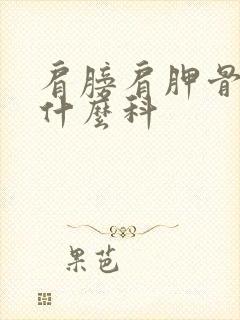 肩膀肩胛骨
什麼科
果芭